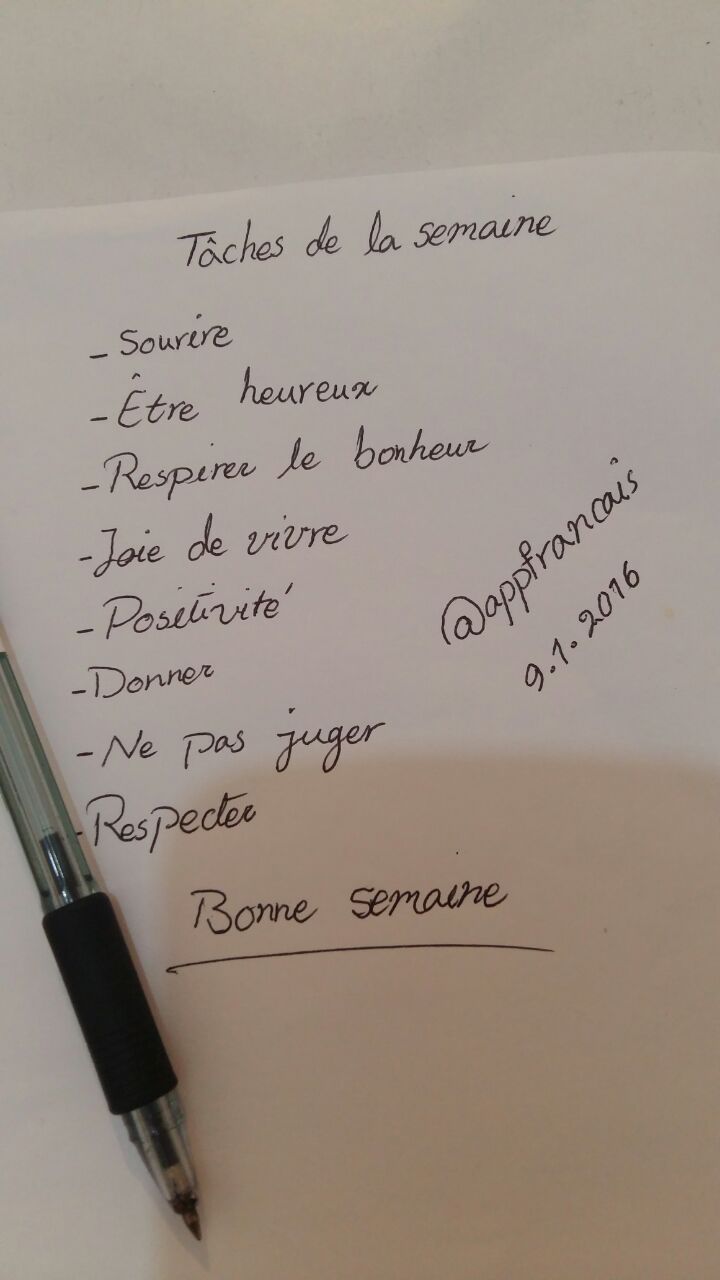 Tâches de la semaine
- Sourire
- Être heureux
- Respirer le bonheur
- Joie de vivre
- Positivité
- Donner
- Ne pas juger
- Respecter
@appfrancais
9.1.2016
Bonne semaine